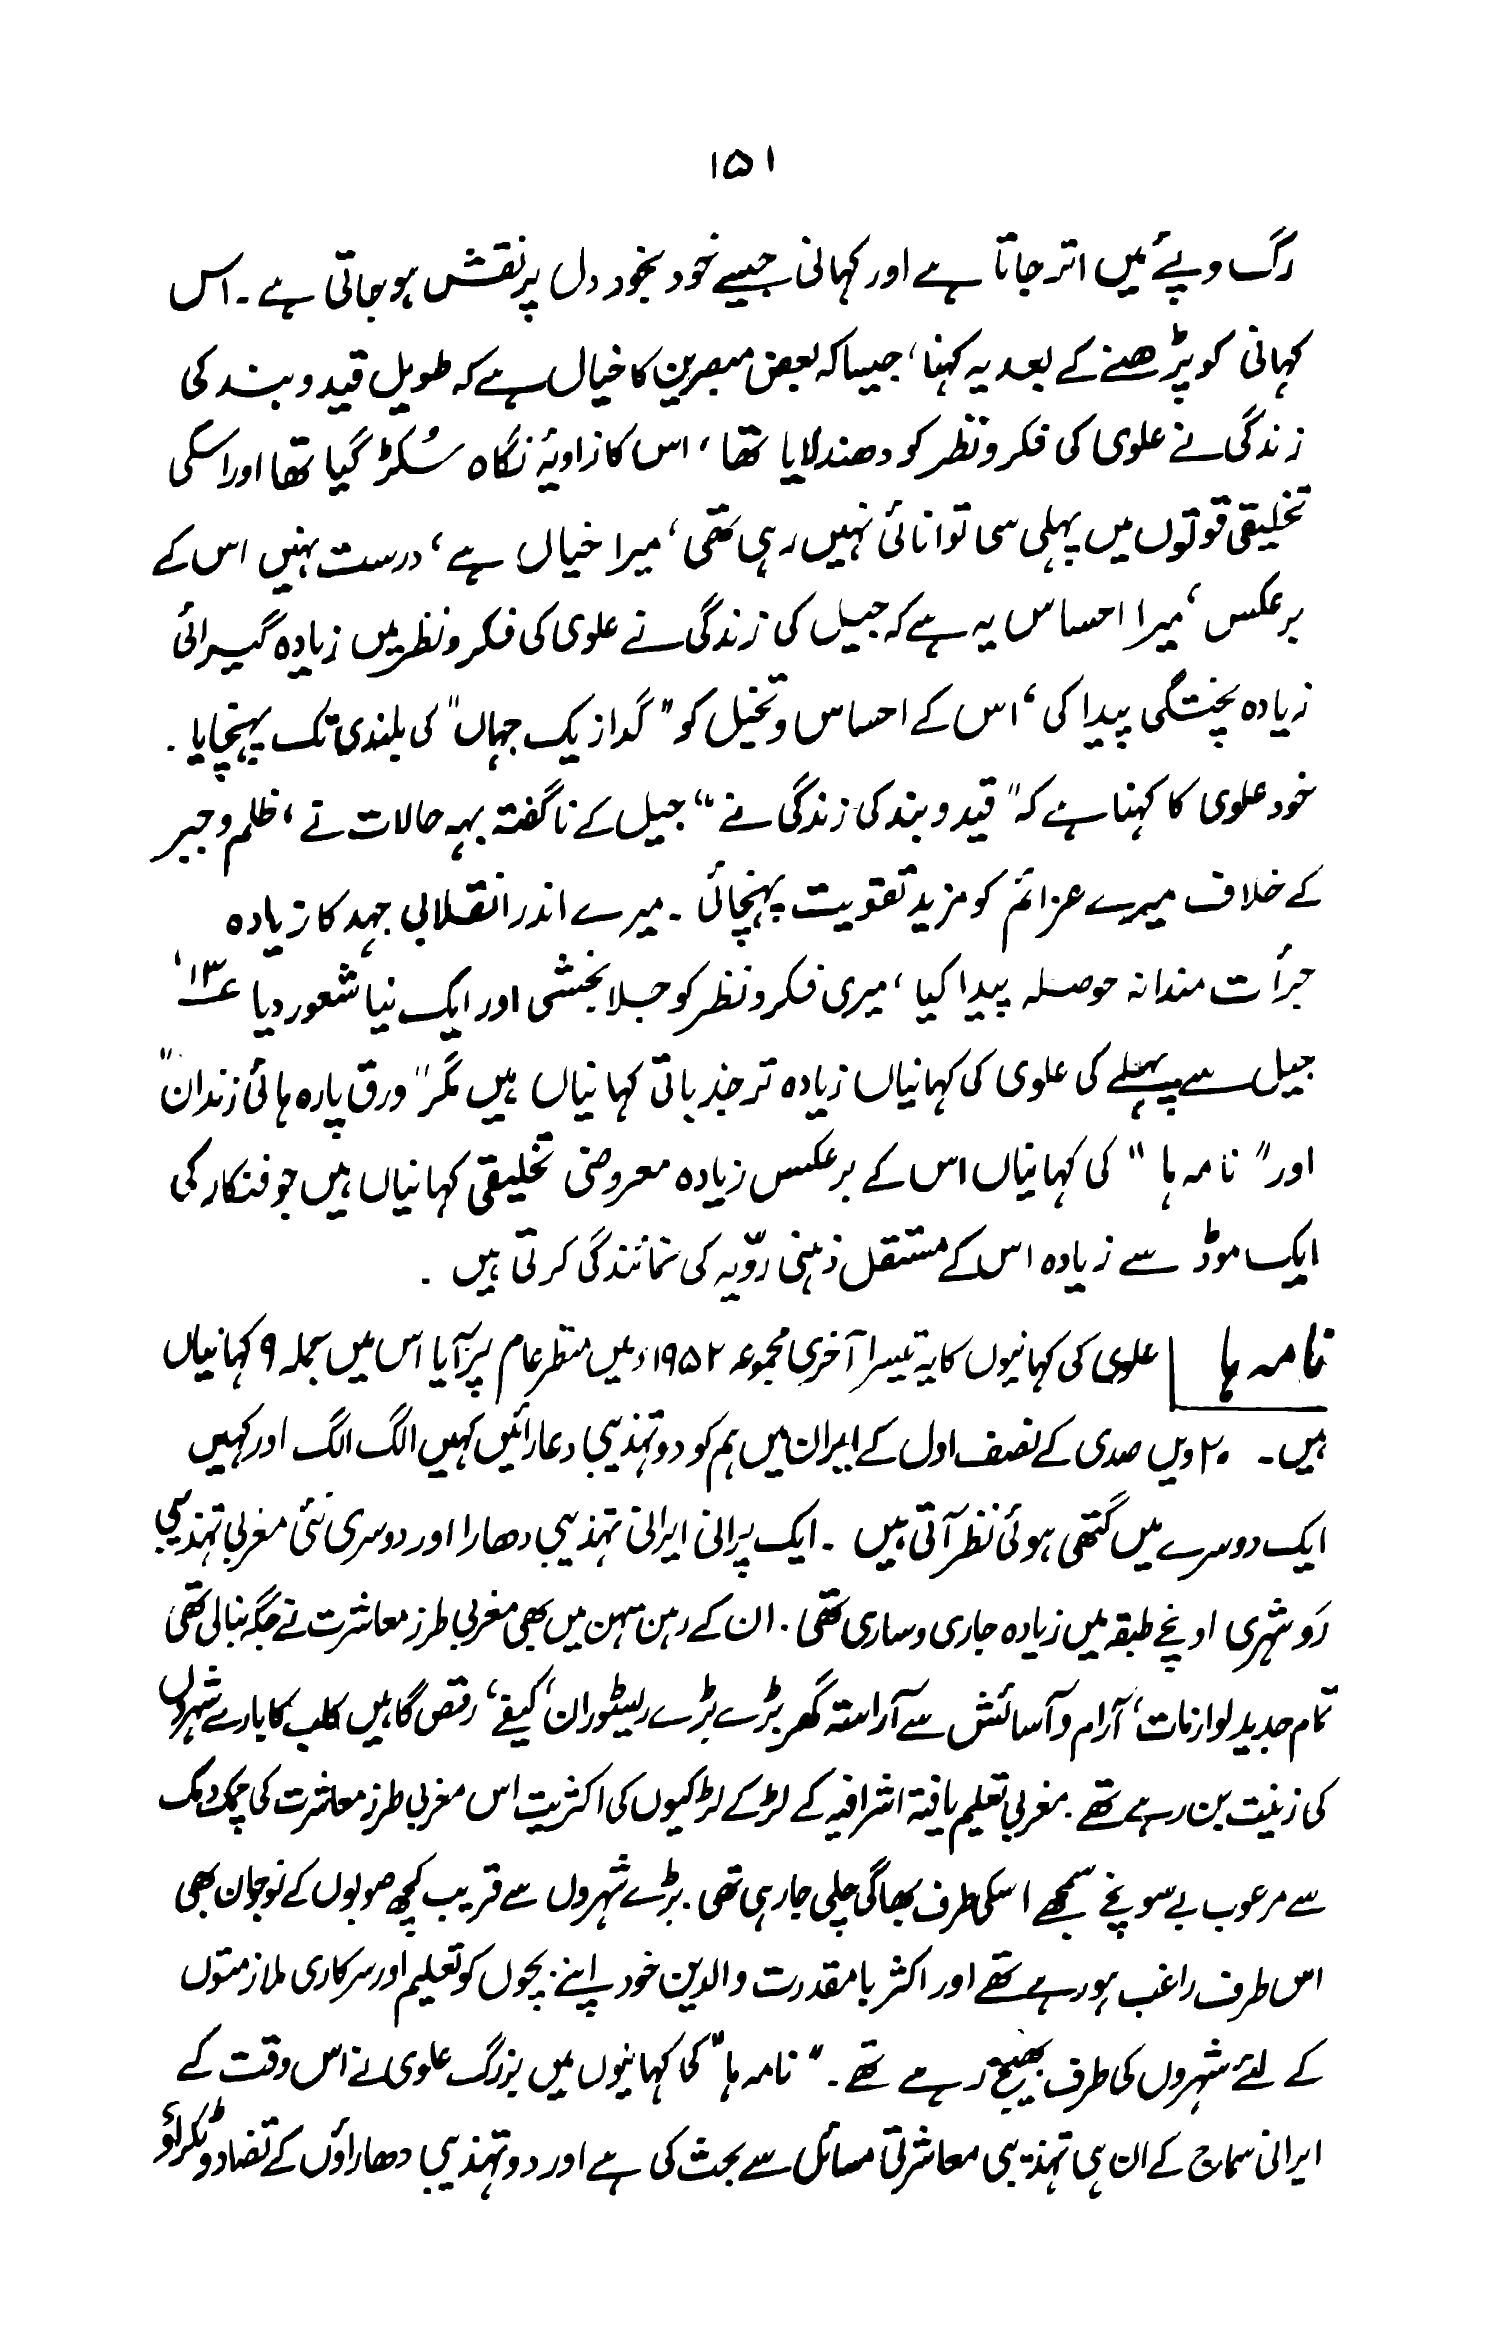 ۱۵۱
رگ و پئے میں اتر جاتا ہے اور کہانی جیسے خود بخود دل پر نقش ہو جاتی ہے ۔ اس
کہانی کو پڑھنے کے بعد یہ کہنا ، جیسا کہ بعض مبصرین کا خیال ہے کہ طویل قید و بند کی
زندگی نے علوی کی فکر و نظر کو دھندلایا تھا ، اس کا زاویۂ نگاہ سُکڑ گیا تھا اور اسکی
تخلیقی قوتوں میں پہلی سی توانائی نہیں رہی تھی ، میرا خیال ہے ، درست نہیں اس کے
برعکس ، میرا احساس یہ ہے کہ جیل کی زندگی نے علوی کی فکر و نظر میں زیادہ گیرائی
زیادہ پختگی پیدا کی ، اس کے احساس و تخیل کو " گداز یک جہاں " کی بلندی تک پہنچایا ۔
خود علوی کا کہنا ہے کہ " قید و بند کی زندگی نے " جیل کے ناگفتہ بہہ حالات نے ، ظلم و جبر
کے خلاف میرے عزائم کو مزید تقویت پہنچائی ۔ میرے اندر انقلابی جہد کا زیادہ
جرأت مندانہ حوصلہ پیدا کیا ، میری فکر و نظر کو جلا بخشی اور ایک نیا شعور دیا ؏۱۳ ،
جیل سے پہلے کی علوی کی کہانیاں زیادہ تر جذباتی کہانیاں ہیں مگر " ورق پارہ ہائی زندان "
اور " نامہ ہا " کی کہانیاں اس کے برعکس زیادہ معروضی تخلیقی کہانیاں ہیں جو فنکار کی
ایک موڈ سے زیادہ اس کے مستقل ذہنی روّیہ کی نمائندگی کرتی ہیں ۔
نامہ ہا علوی کی کہانیوں کا یہ تیسرا آخری مجموعہ ۱۹۵۲ء میں منظر عام پر آیا اس میں جملہ ۹ کہانیاں
ہیں ۔ ۲۰ ویں صدی کے نصف اول کے ایران میں ہم کو دو تہذیبی دھارائیں کہیں الگ الگ اور کہیں
ایک دوسرے میں گتھی ہوئی نظر آتی ہیں ۔ ایک پرانی ایرانی تہذیبی دھارا اور دوسری نئی مغربی تہذیبی
رَو شہری اونچے طبقہ میں زیادہ جاری و ساری تھی ۔ ان کے رہن سہن میں بھی مغربی طرز معاشرت نے جگہ بنالی تھی
تمام جدید لوازمات ، آرام و آسائش سے آراستہ گھر بڑے بڑے ریسٹوران ، کیفے ، رقص گاہیں کلب کابارے شہروں
کی زینت بن رہے تھے ۔ مغربی تعلیم یافتہ اشرافیہ کے لڑکے لڑکیوں کی اکثریت اس مغربی طرز معاشرت کی چمک دمک
سے مرعوب بے سونچے سمجھے اسکی طرف بھاگی چلی جا رہی تھی ۔ بڑے شہروں سے قریب کچھ صوبوں کے نوجوان بھی
اس طرف راغب ہو رہے تھے اور اکثر بامقدرت والدین خود اپنے بچوں کو تعلیم اور سرکاری ملازمتوں
کے لئے شہروں کی طرف بھیج رہے تھے ۔ " نامہ ہا " کی کہانیوں میں بزرگ علوی نے اس وقت کے
ایرانی سماج کے ان ہی تہذیبی معاشرتی مسائل سے بحث کی ہے اور دو تہذیبی دھاراؤں کے تضاد و ٹکراؤ